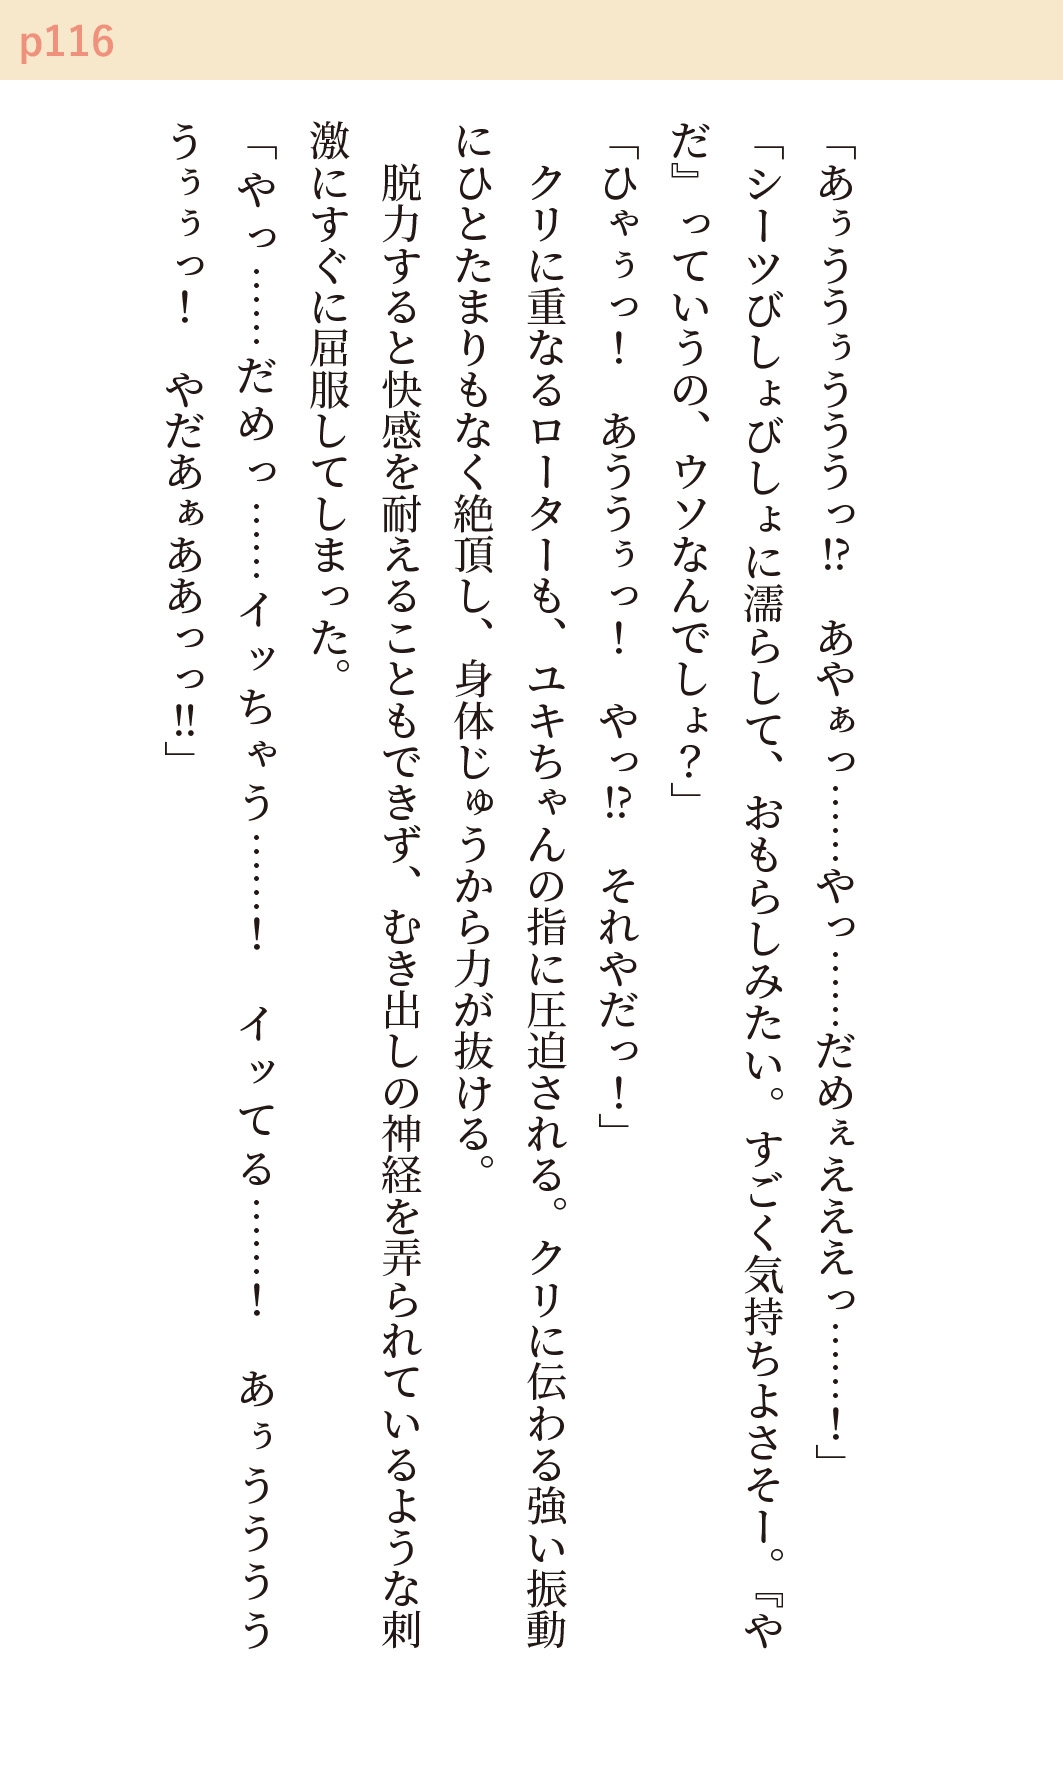 p116
「あぅううぅうううっ!?　あやぁっ……やっ……だめぇえええっ……！」
「シーツびしょびしょに濡らして、おもらしみたい。すごく気持ちよさそー。『や
だ』っていうの、ウソなんでしょ？」
「ひゃぅっ！　あううぅっ！　やっ!?　それやだっ！」
　クリに重なるローターも、ユキちゃんの指に圧迫される。クリに伝わる強い振動
にひとたまりもなく絶頂し、身体じゅうから力が抜ける。
　脱力すると快感を耐えることもできず、むき出しの神経を弄られているような刺
激にすぐに屈服してしまった。
「やっ……だめっ……イッちゃう……！　イッてる……！　あぅうううう
うぅぅっ！　やだあぁああっっ!!」